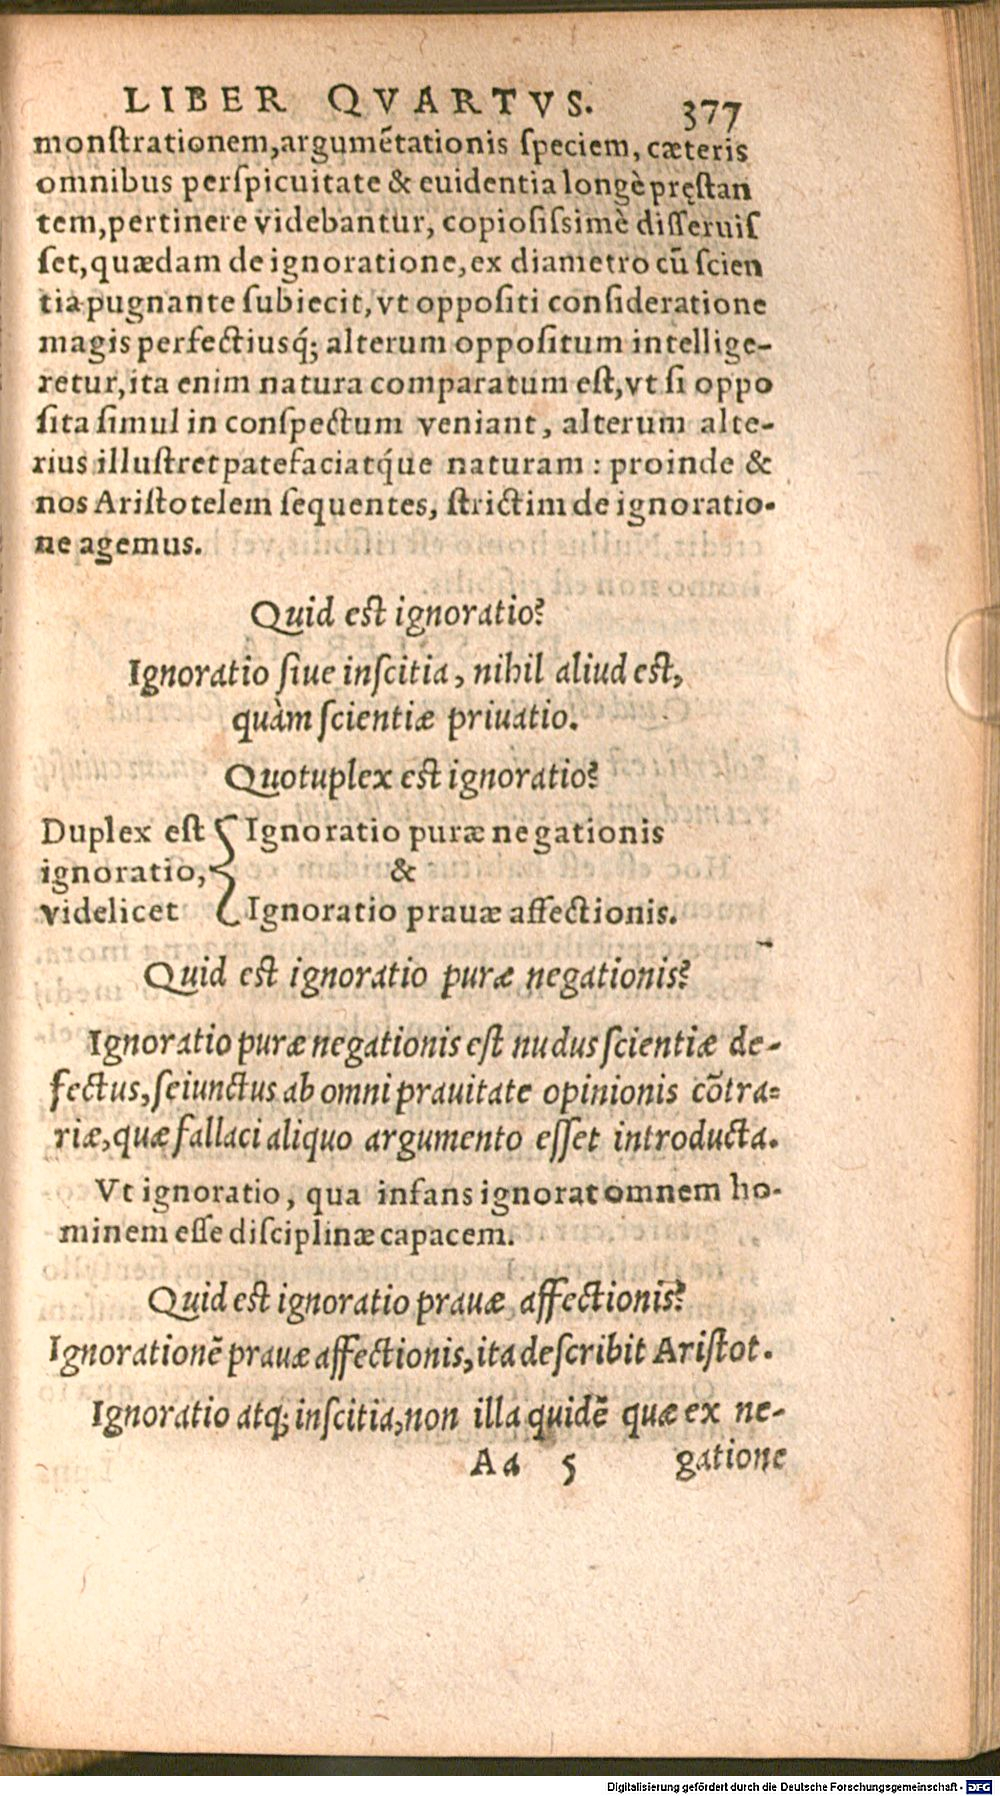 LIBER QVARTVS. 377
monſtrationem, argumẽtationis ſpeciem, cæteris
omnibus perſpicuitate & euidentia longè pręſtan
tem, pertinere videbantur, copioſiſsimè diſſeruiſ
ſet, quædam de ignoratione, ex diametro cũ ſcien
tia pugnante ſubiecit, vt oppoſiti conſideratione
magis perfectiusq́; alterum oppoſitum intellige-
retur, ita enim natura comparatum eſt, vt ſi oppo
ſita ſimul in conſpectum veniant, alterum alte-
rius illuſtret patefaciatq́ue naturam: proinde &
nos Ariſtotelem ſequentes, ſtrictim de ignoratio-
ne agemus.
Quid eſt ignoratio?
Ignoratio ſiue inſcitia, nihil aliud eſt,
quàm ſcientiæ priuatio.
Quotuplex eſt ignoratio?
Duplex eſt { Ignoratio puræ negationis
ignoratio, &
videlicet Ignoratio prauæ affectionis.
Quid eſt ignoratio puræ negationis?
Ignoratio puræ negationis eſt nudus ſcientiæ de-
fectus, ſeiunctus ab omni prauitate opinionis cõtra-
riæ, quæ fallaci aliquo argumento eſſet introducta.
Vt ignoratio, qua infans ignorat omnem ho-
minem eſſe diſciplinæ capacem.
Quid eſt ignoratio prauæ affectionis?
Ignorationẽ prauæ affectionis, ita deſcribit Ariſtot.
Ignoratio atq; inſcitia, non illa quidẽ quæ ex ne-
Aa 5 gatione
Digitalisierung gefördert durch die Deutsche Forschungsgemeinschaft - DFG